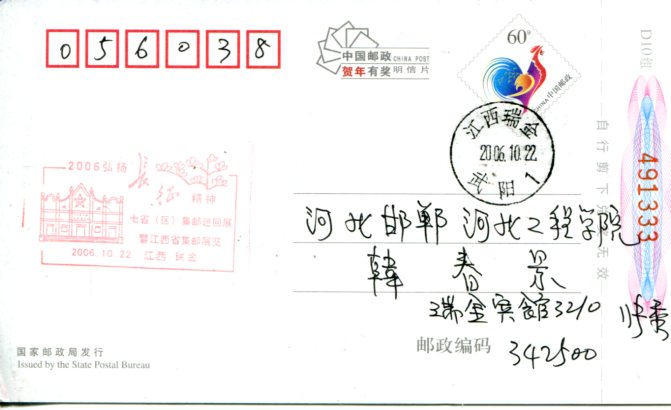 056038
中国邮政 CHINA POST
贺年有奖明信片
60分
CHINA 中国邮政
江西瑞金
2006.10.22
武阳 1
2006弘扬
长征
精神
七省（区）集邮巡回展
暨江西省集邮展览
2006.10.22 江西·瑞金
河北邯郸 河北工程学院
韓春景
瑞金宾館3210
邮政编码 342500
国家邮政局发行
Issued by the State Postal Bureau
491333